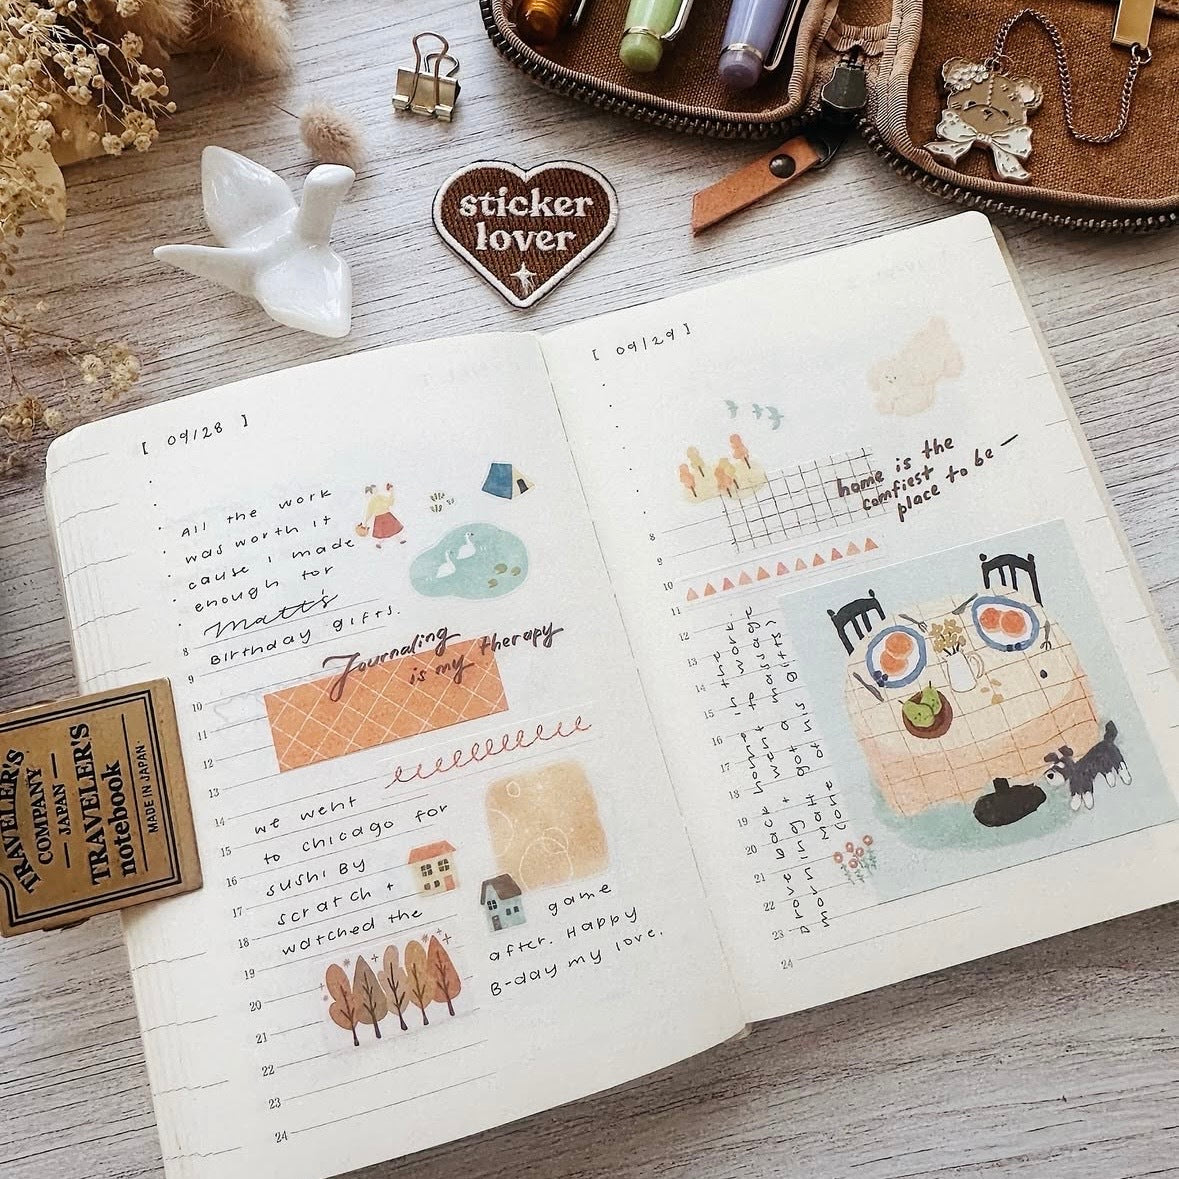 sticker
lover
[ 09/28 ]
All the work
was worth it
cause I made
enough for
Matt's
Birthday gifts.
Journaling
is my therapy
we went
to chicago for
sushi By
scratch +
watched the
game
after. Happy
B-day my love.
8
9
10
11
12
13
14
15
16
17
18
19
20
21
22
23
24
TRAVELER'S
COMPANY
JAPAN
TRAVELER'S
notebook
MADE IN JAPAN
[ 09/29 ]
home is the
comfiest
place to be —
8
9
10
11
12
13
14
15
16
17
18
19
20
21
22
23
24
drove Back home in the
morning + went to work.
Matt got a massage